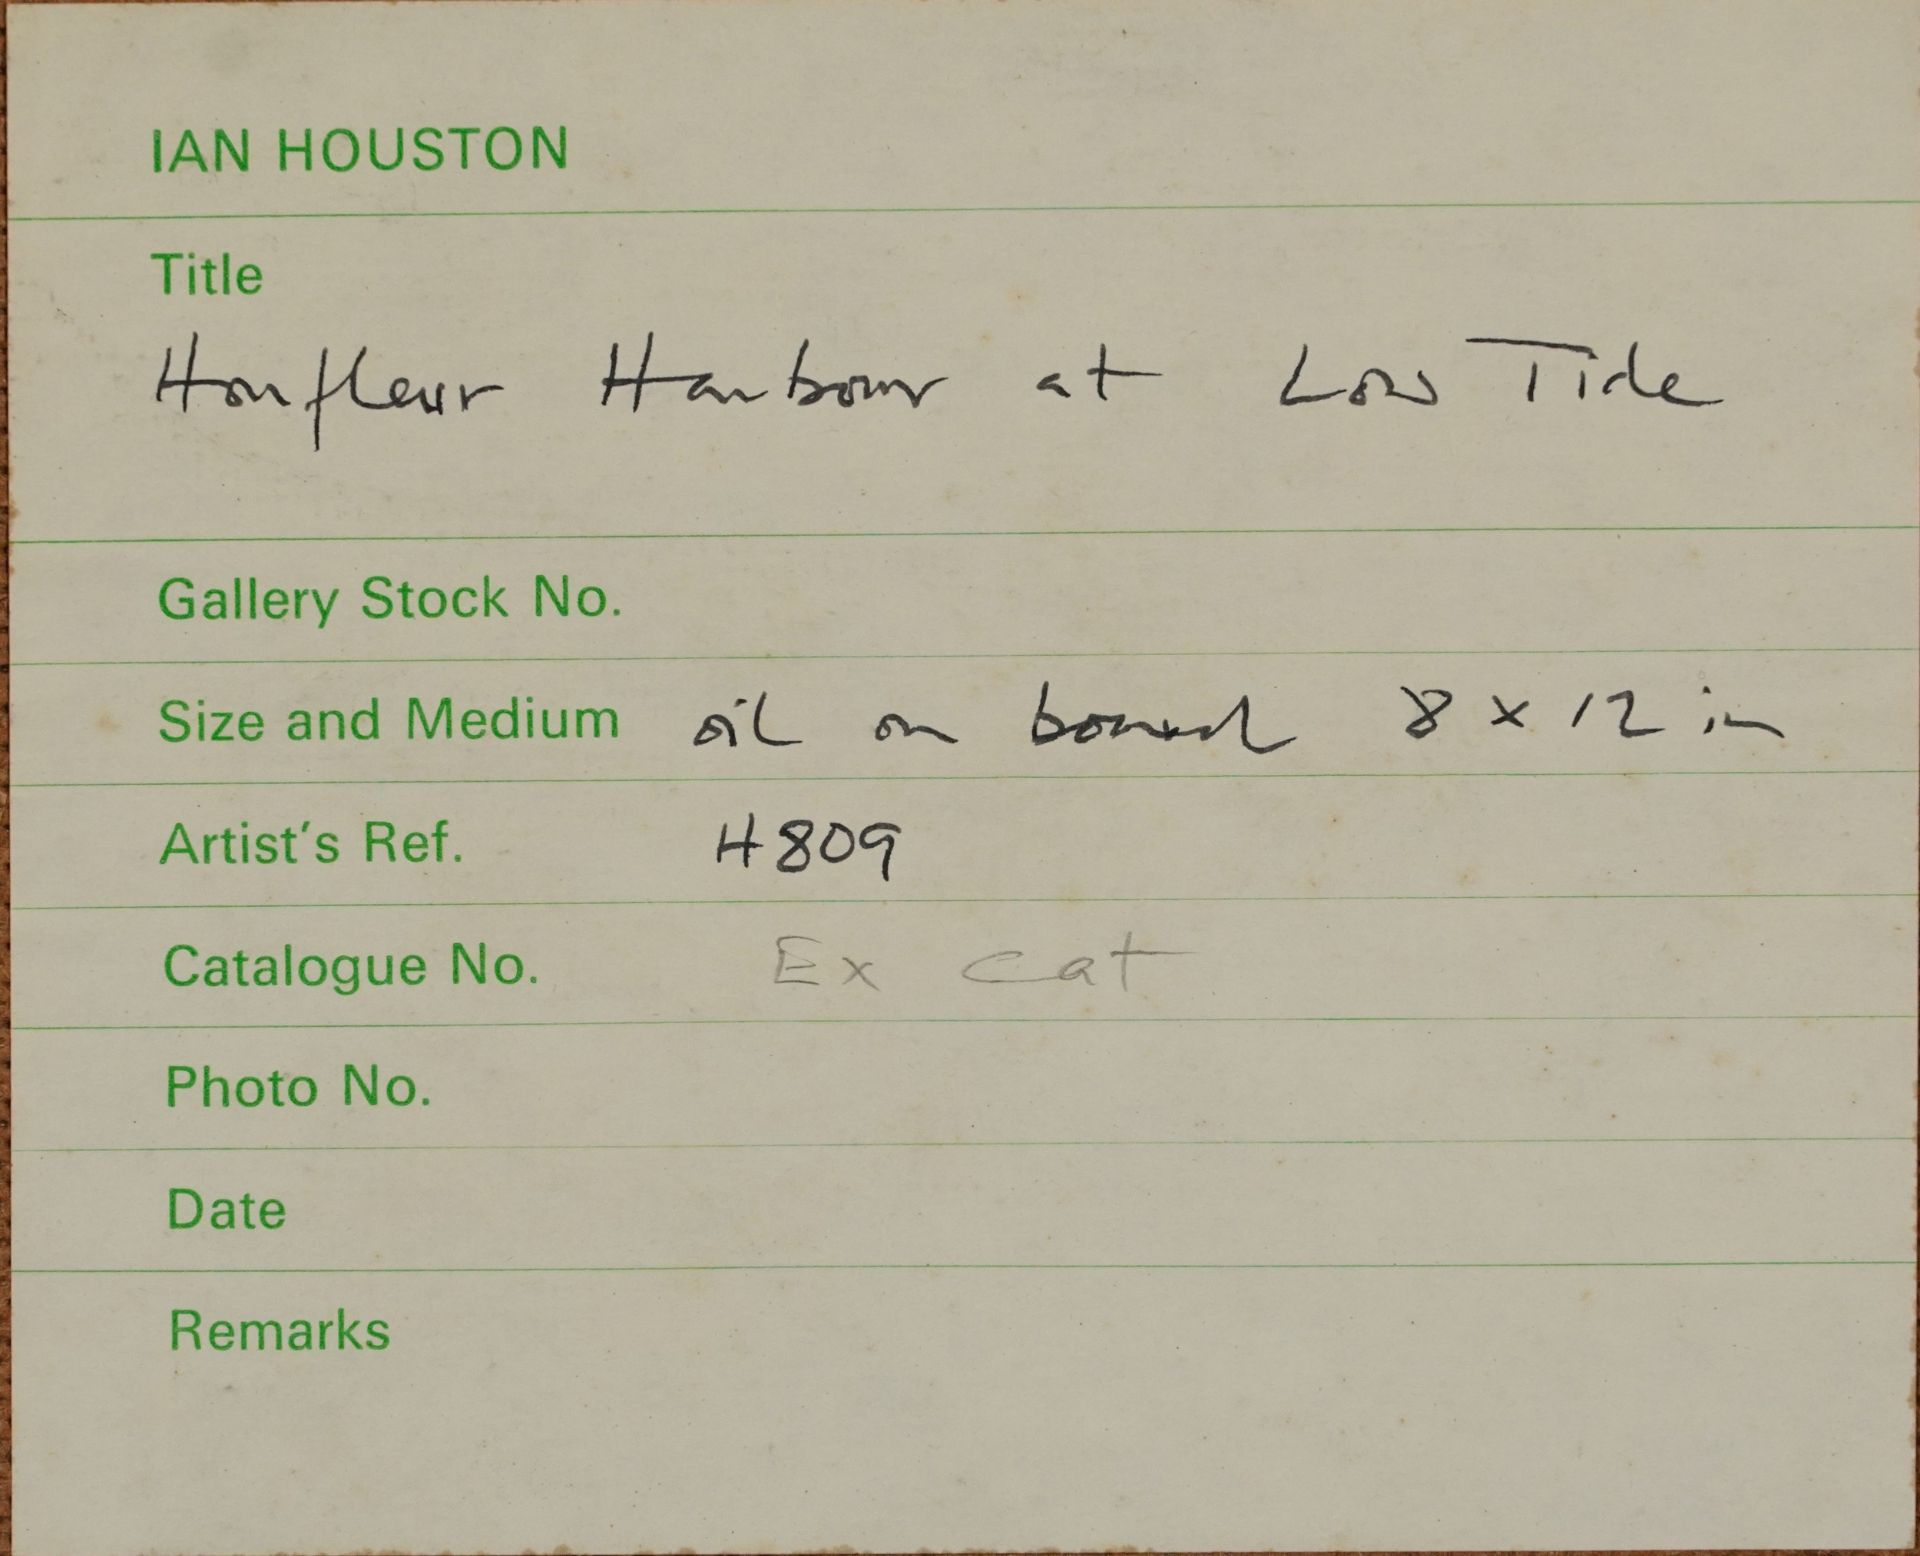 IAN HOUSTON
Title
Honfleur Harbour at Low Tide
Gallery Stock No.
Size and Medium oil on board 8 x 12 in
Artist's Ref. H809
Catalogue No. Ex cat
Photo No.
Date
Remarks